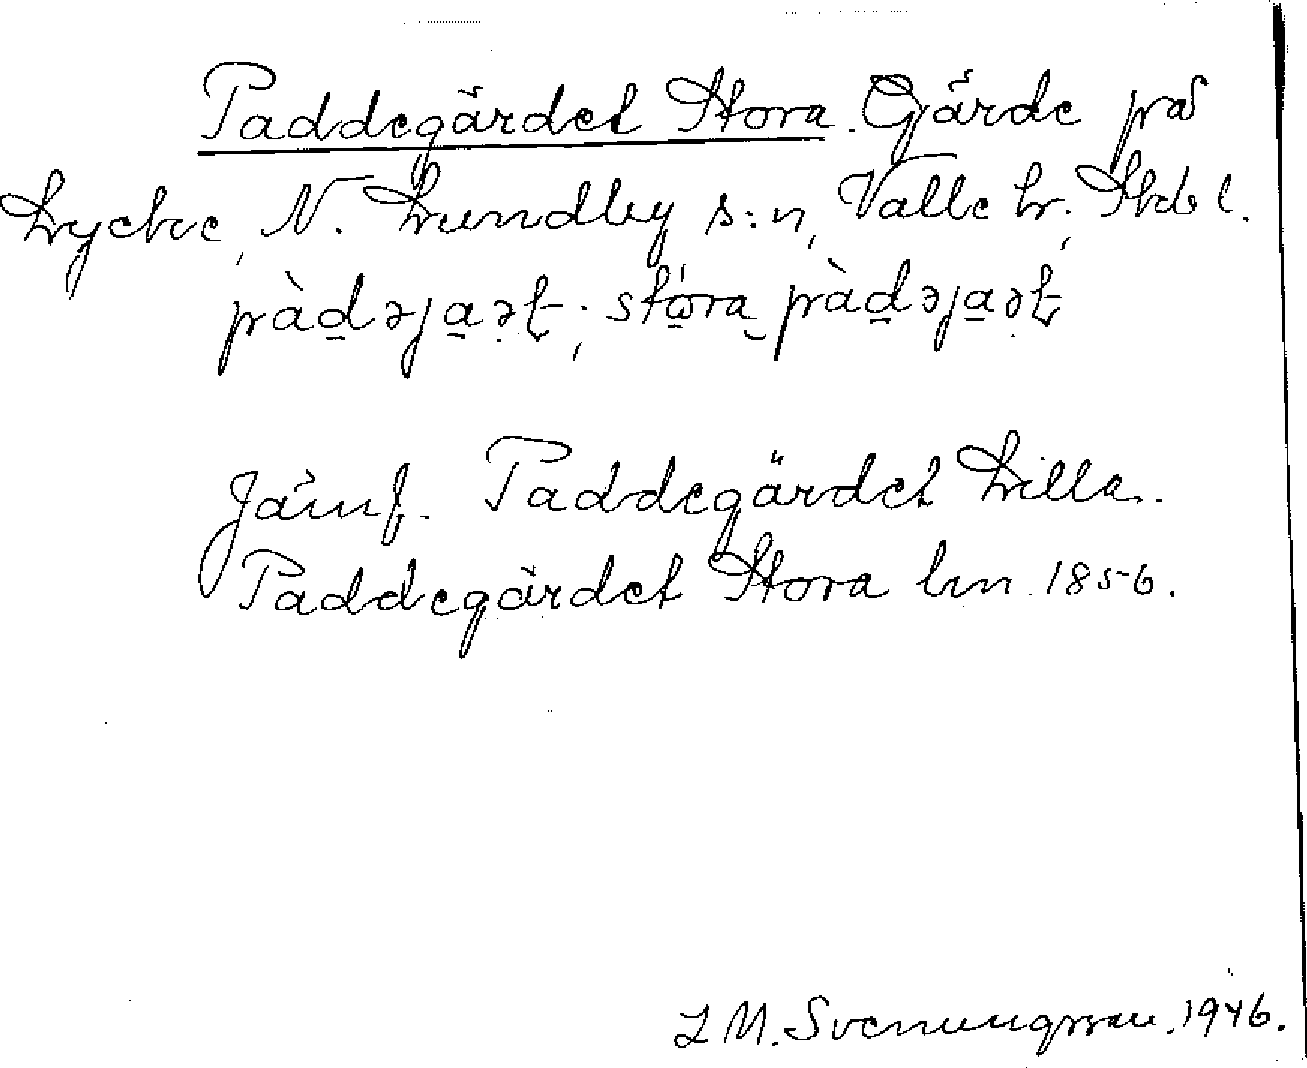 Paddegärdet Stora. Gärde på
Lycke, N. Lundby s:n, Valle hr, Skbl.
pàdəjaət; stóra pàdəjaət
Jämf. Paddegärdet Lilla.
Paddegärdet Stora hm 1856.
L M. Svenungsson. 1946.